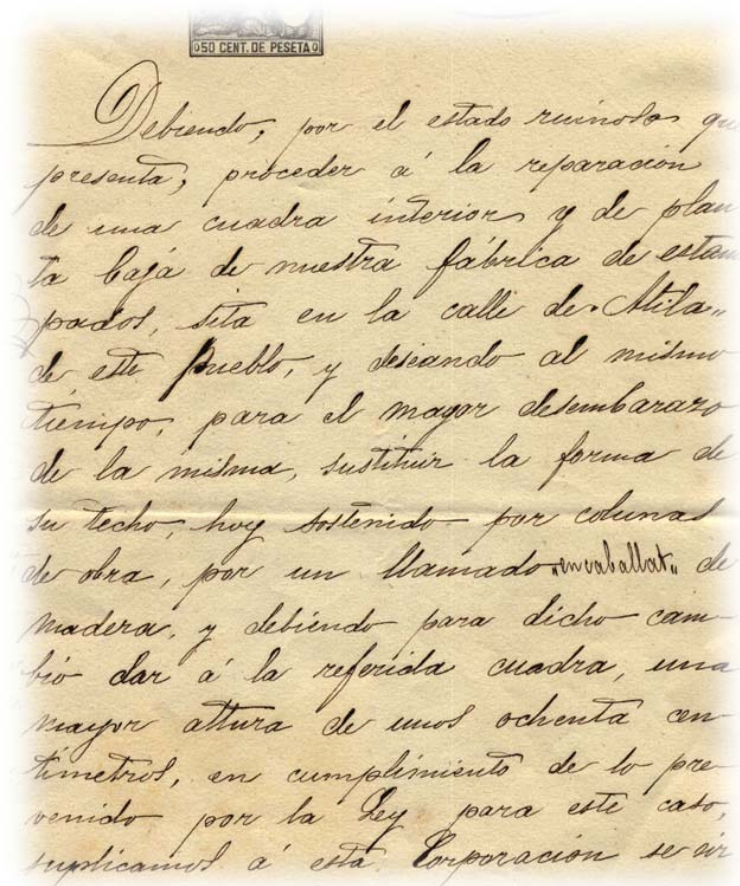 50 CENT. DE PESETA
Debiendo, por el estado ruinoso que
presenta, proceder á la reparación
de una cuadra interior y de plan
ta baja de nuestra fábrica de estam
pados, sita en la calle de Atila„
de este pueblo, y deseando al mismo
tiempo, para el mayor desembarazo
de la misma, sustituir la forma de
su techo, hoy sostenido por colunas
de obra, por un llamado „encaballat„ de
madera, y debiendo para dicho cam-
bio dar á la referida cuadra, una
mayor altura de unos ochenta cen
tímetros, en cumplimiento de lo pre
venido por la Ley para este caso,
suplicamos á esta Corporación se sir